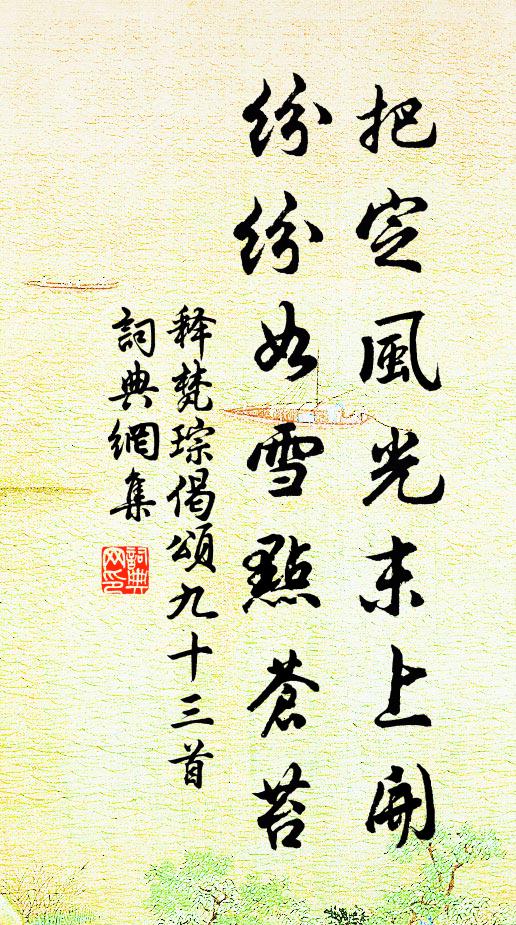 把定風光末上開
紛紛如雪點蒼苔
释梵琮偈頌九十三首
詞典網集
詞典
网印